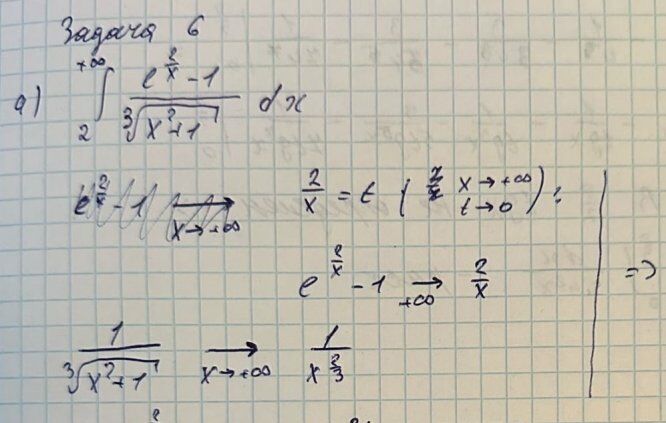 Задача 6
а) ∫₂^{+∞} (e^{2/x} - 1) / ∛(x²+1) dx
e^{2/x} - 1 ⟶_{x→+∞} 2/x = t ( x→+∞ t→0 ) :
e^{2/x} - 1 →_{+∞} 2/x | =>
1/∛(x²+1) ⟶_{x→+∞} 1/x^{2/3}